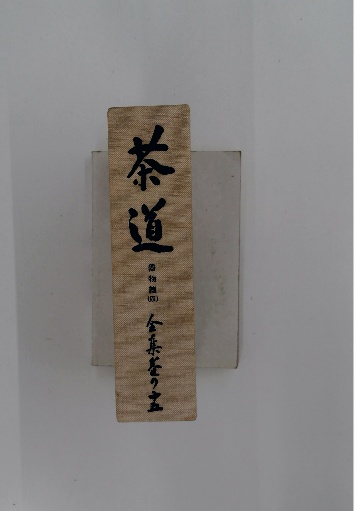 茶道
器物篇(四)
全集巻の十五